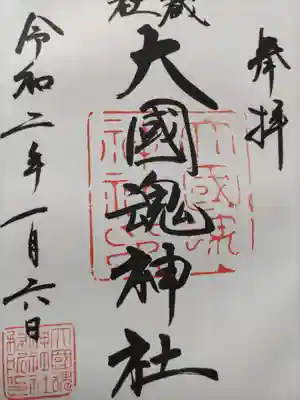 奉拝
蔵社
大國魂神社
令和二年一月六日